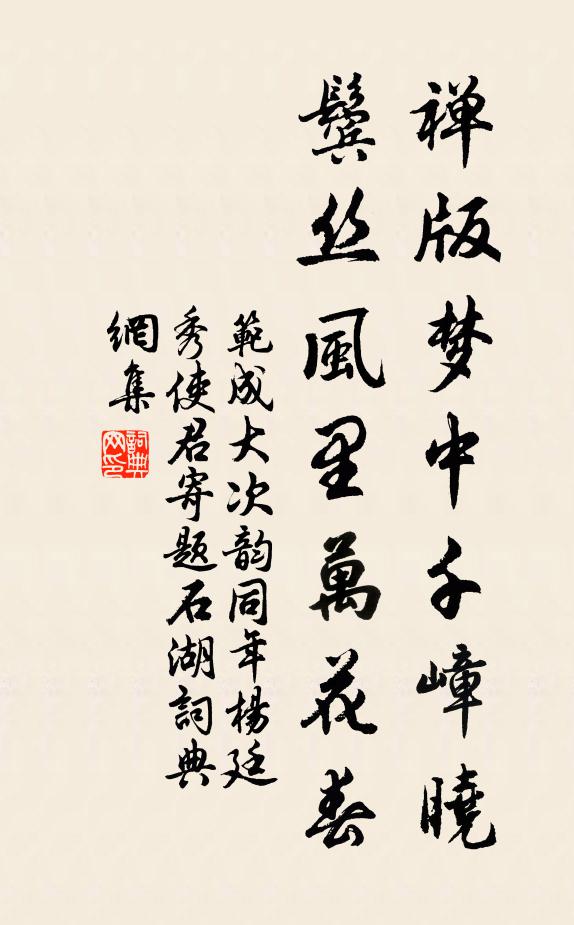 禅版梦中千嶂曉
鬓丝風里萬花春
範成大次韵同年楊廷
秀使君寄题石湖詞典
網集
詞典网印